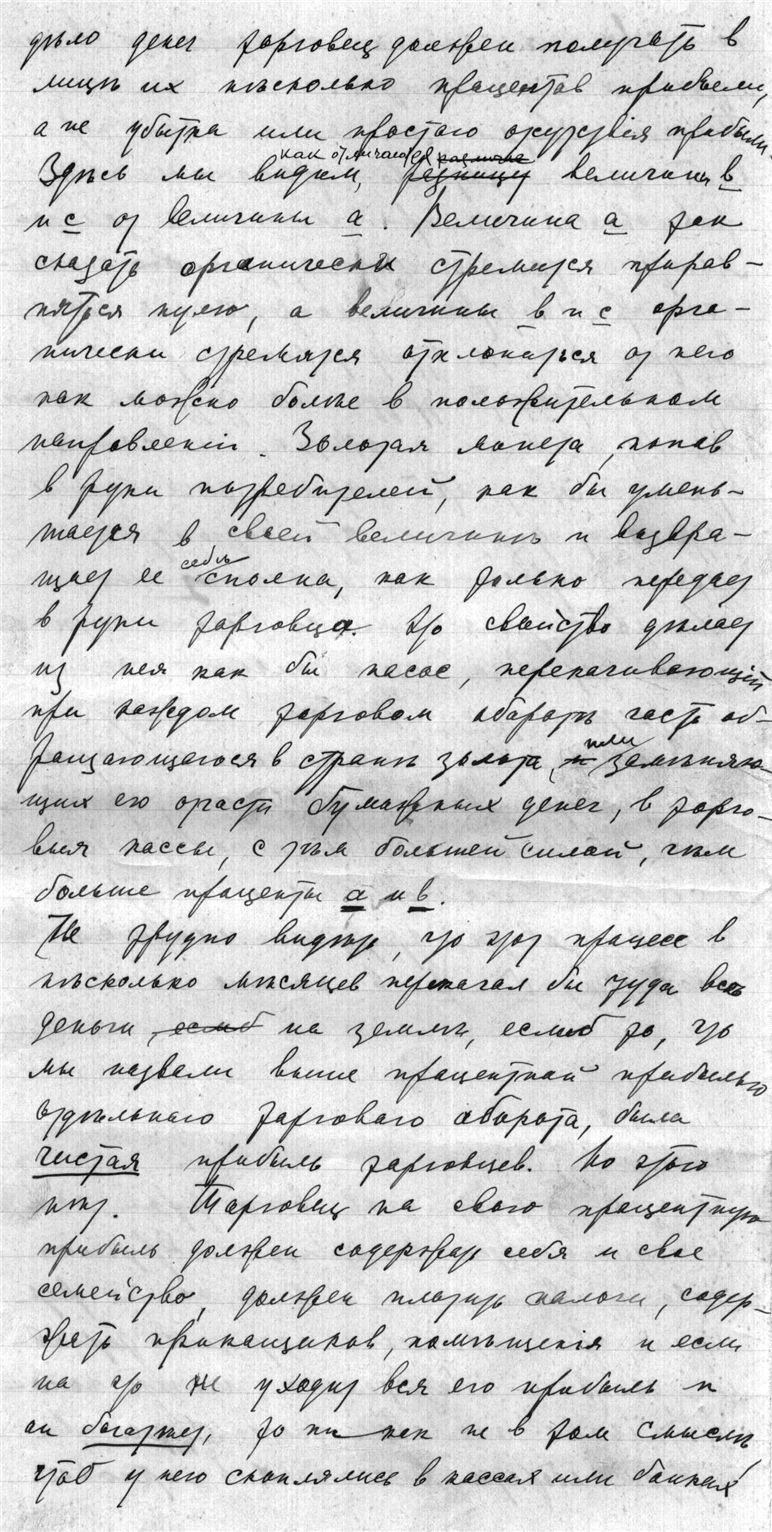 дѣло денег торговец должен получать в
лицѣ их нѣсколько процентов прибыли,
а не убытка или простого отсутствія прибыли.
Здѣсь мы видим, как отличаются величины в
и с от величины а. Величина а так
сказать органически стремится прирав-
няться нулю, а величины в и с орга-
нически стремятся отклониться от него
как можно болѣе в положительном
направленіи. Золотая монета, попав
в руки потребителей, как бы умень-
шается в своей величинѣ и возвра-
щает ее себѣ сполна, как только передает
в руки торговца. Это свойство дѣлает
из нея как бы насос, перекачивающій
при каждом торговом оборотѣ часть об-
ращающагося в странѣ золота, или замѣняю-
щих его отчасти бумажных денег, в торго-
выя кассы, с тѣм большей силой, чѣм
больше проценты а и в.
Не трудно видѣть, что этот процесс в
нѣсколько мѣсяцев перекачал бы туда всѣ
деньги на землѣ, еслиб то, что
мы назвали выше процентной прибылью
отдѣльнаго торговаго оборота, была
чистая прибыль торговцев. Но этого
нѣт. Торговец на свою процентную
прибыль должен содержать себя и свое
семейство, должен платить налоги, содер-
жать приказщиков, помѣщенія и если
на это не уходит вся его прибыль и
он богатѣет, то никак не в том смыслѣ,
чтоб у него скоплялись в кассах или банках